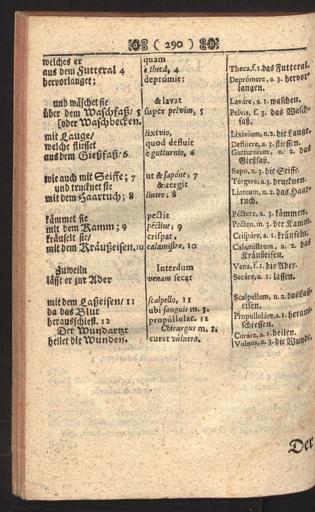 ( 290 )
welches er
aus dem Futteral 4
hervorlanget;
und wäschet sie
über dem Waschfaß/ 5
(oder Waschbecken.
mit Lauge/
welche fliesset
aus dem Gießfaß/ 6
wie auch mit Seiffe; 7
und trucknet sie
mit dem Haartuch; 8
kämmet sie
mit dem Kamm; 9
kräuselt sie/
mit dem Kräußeisen. 10
Zuweiln
läßt er zur Ader
mit dem Laßeisen/ 11
da das Blut
herausschiest. 12
Der Wundartzt
heilet die Wunden.
quam
è thecâ, 4
deprómit;
& lavat
super pelvim, 5
lixivio,
quod defluit
è gutturnio, 6
ut & sapone; 7
& tergit
linteo; 8
pectit
péctine; 9
crispat,
calamistro. 10
Interdum
venam secat
scalpello, 11
ubi sanguis m. 3.
propúllulat. 12
Chirurgus m. 2.
curat vúlnera.
Theca, f. 1. das Futteral.
Deprómere, a. 3. hervor-
langen.
Laváre, a. 1. waschen.
Pelvis, f. 3. das Wasch-
faß.
Lixivium, n. 2. die Lauge.
Deflúere, a. 3. fliessen.
Gutturnium, n. 2. das
Gießfaß.
Sapo, m. 3. die Seiffe.
Térgere, a. 3. drucknen.
Linteum, n. 2. das Haar-
tuch.
Péctere, a. 3. kämmen.
Pecten, m. 3. der Kamm.
Crispáre, a. 1. kräuseln.
Calamistrum, n. 2. das
Kräußeisen.
Vena, f. 1. die Ader.
Secáre, a. 1. lassen.
Scalpellum, n. 2. das Laß-
eisen.
Propulluláre, a. 1. heraus-
schiessen.
Curáre, a. 1. heilen.
Vulnus, n. 3. die Wunde.
Der